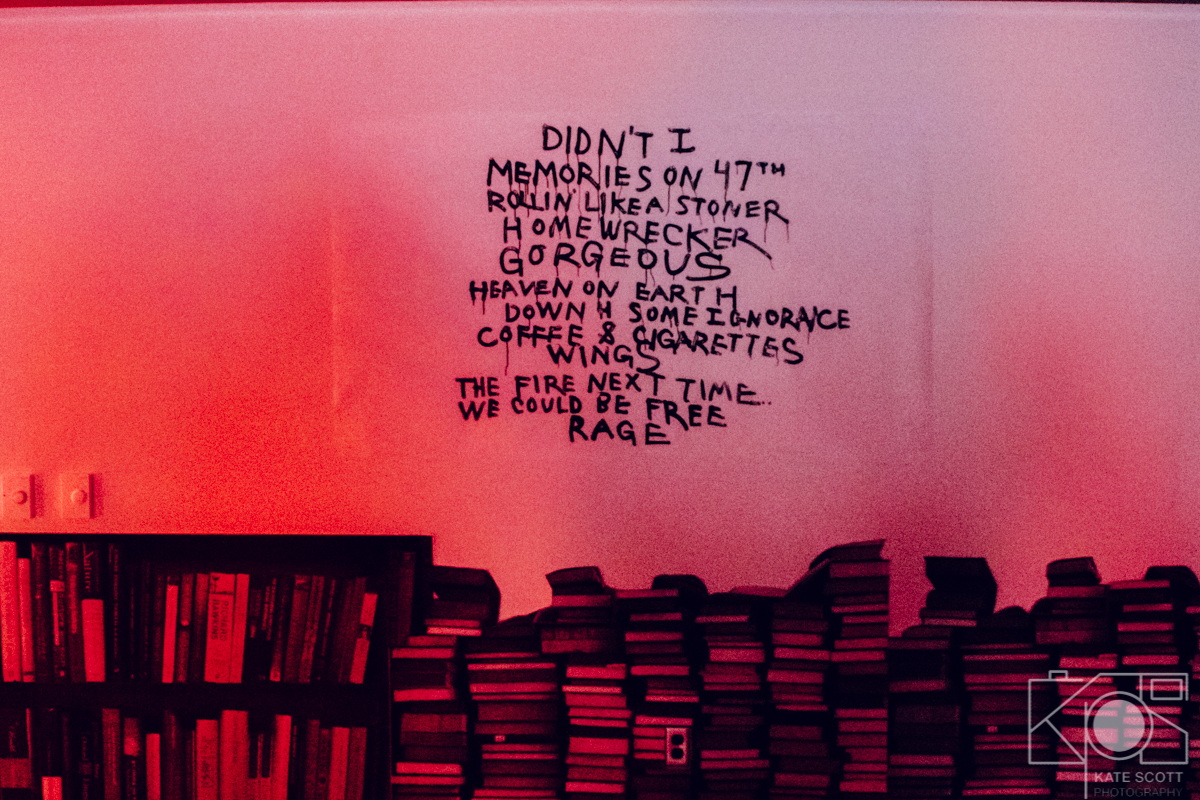 DIDN'T I
MEMORIES ON 47TH
ROLLIN' LIKE A STONER
HOMEWRECKER
GORGEOUS
HEAVEN ON EARTH
DOWN 4 SOME IGNORANCE
COFFEE & CIGARETTES
WINGS
THE FIRE NEXT TIME..
WE COULD BE FREE
RAGE
KATE SCOTT
PHOTOGRAPHY